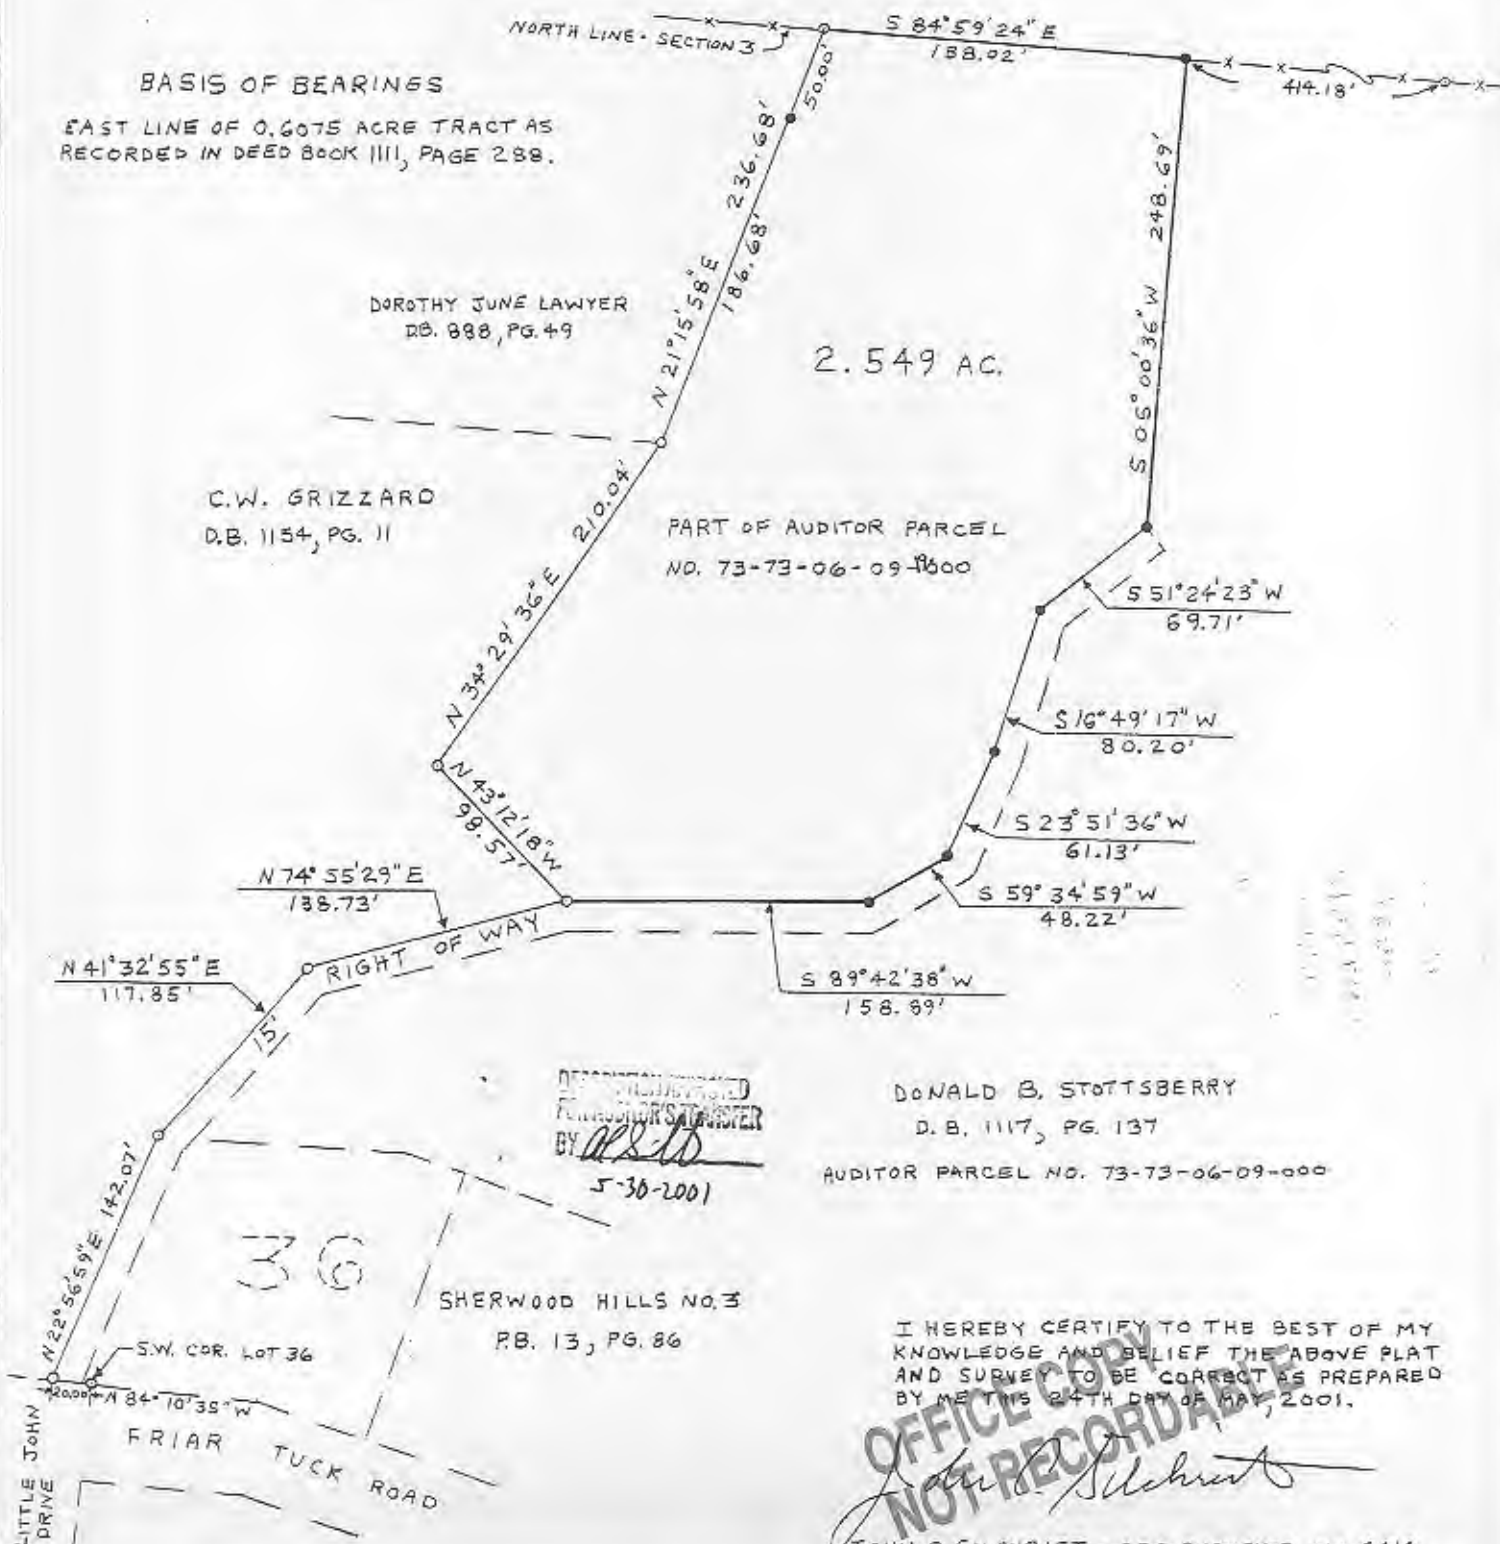 NORTH LINE - SECTION 3
S 84° 59' 24" E
188.02'
414.18'
BASIS OF BEARINGS
EAST LINE OF 0.6075 ACRE TRACT AS
RECORDED IN DEED BOOK 1111, PAGE 288.
50.00'
N 21° 15' 58" E 236.68'
186.68'
S 05° 00' 36" W 248.69'
DOROTHY JUNE LAWYER
D.B. 888, PG. 49
2.549 AC.
C.W. GRIZZARD
D.B. 1154, PG. 11
N 34° 29' 36" E 210.04'
PART OF AUDITOR PARCEL
NO. 73-73-06-09-
S 51° 24' 23" W
69.71'
S 16° 49' 17" W
80.20'
N 43° 12' 18" W
98.57'
S 23° 51' 36" W
61.13'
S 59° 34' 59" W
48.22'
N 74° 55' 29" E
138.73'
RIGHT OF WAY
S 89° 42' 38" W
158.89'
N 41° 32' 55" E
117.85'
15'
FOR AUDITOR'S TRANSFER
BY
5-30-2001
DONALD B. STOTTSBERRY
D.B. 1117, PG. 137
AUDITOR PARCEL NO. 73-73-06-09-000
N 22° 56' 59" E 142.07'
36
SHERWOOD HILLS NO. 3
P.B. 13, PG. 86
S.W. COR. LOT 36
20.00'
N 84° 10' 35" W
FRIAR TUCK ROAD
LITTLE JOHN
DRIVE
I HEREBY CERTIFY TO THE BEST OF MY
KNOWLEDGE AND BELIEF THE ABOVE PLAT
AND SURVEY TO BE CORRECT AS PREPARED
BY ME THIS 24TH DAY OF MAY, 2001.
OFFICE COPY
NOT RECORDABLE